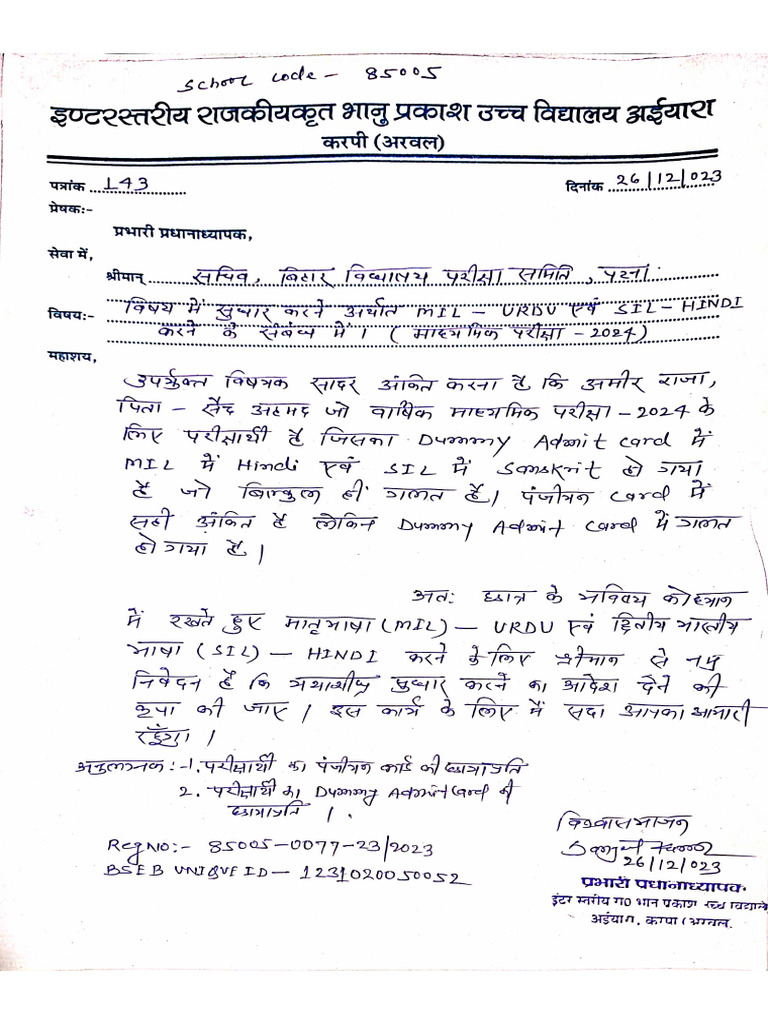 School code - 85005
इण्टरस्तरीय राजकीयकृत भानु प्रकाश उच्च विद्यालय अईयारा
करपी (अरवल)
पत्रांक ...143... दिनांक ...26/12/023
प्रेषकः-
प्रभारी प्रधानाध्यापक,
सेवा में,
श्रीमान् सचिव, बिहार विद्यालय परीक्षा समिति, पटना
विषयः- विषय में सुधार करने अर्थात MIL - URDU एवं SIL - HINDI
करने के संबंध में। ( माध्यमिक परीक्षा - 2024)
महाशय,
उपर्युक्त विषयक सादर अंकित करना है कि अमीर राजा,
पिता - सैद अहमद जो वार्षिक माध्यमिक परीक्षा - 2024 के
लिए परीक्षार्थी है जिसका Dummy Admit card में
MIL में Hindi एवं SIL में Sanskrit हो गया
है जो बिल्कुल हीं गलत है। पंजीयन card में
सही अंकित है लेकिन Dummy Admit card में गलत
हो गया है।
अतः छात्र के भविष्य को ध्यान
में रखते हुए मातृभाषा (MIL) - URDU एवं द्वितीय भारतीय
भाषा (SIL) - HINDI करने के लिए श्रीमान से नम्र
निवेदन है कि यथाशीघ्र सुधार करने का आदेश देने की
कृपा की जाए। इस कार्य के लिए मैं सदा आपका आभारी
रहूँगा।
अनुलग्नक:-1. परीक्षार्थी का पंजीयन कार्ड की छायाप्रति
2. परीक्षार्थी का Dummy Admit Card की
छायाप्रति।
विश्वासभाजन
Reg No:- 85005-0077-23/2023
26/12/023
BSEB UNIQUE ID - 1231020050052
प्रभारी प्रधानाध्यापक
इंटर स्तरीय रा० भान प्रकाश उच्च विद्यालय
अईयारा, करपी (अरवल)